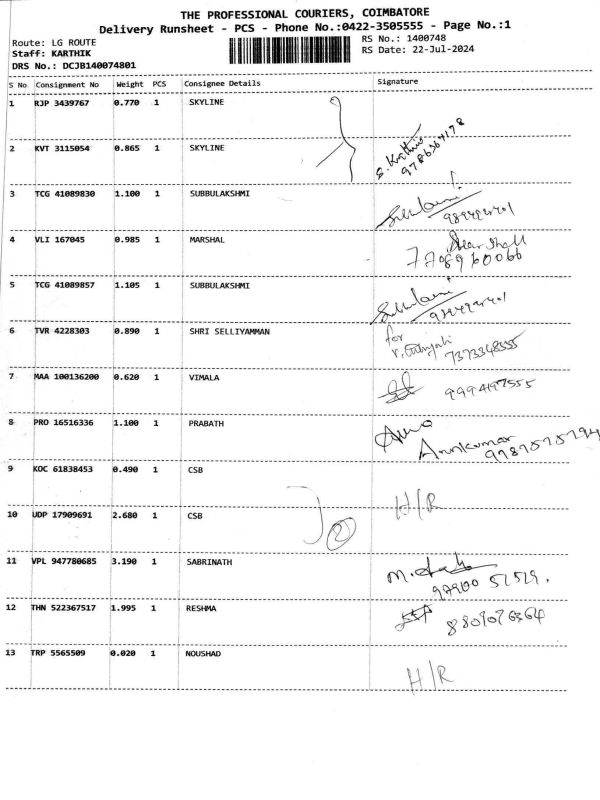 THE PROFESSIONAL COURIERS, COIMBATORE
Delivery Runsheet - PCS - Phone No.:0422-3505555 - Page No.:1
Route: LG ROUTE
Staff: KARTHIK
DRS No.: DCJB140074801
RS No.: 1400748
RS Date: 22-Jul-2024
S No Consignment No Weight PCS Consignee Details Signature
1 RJP 3439767 0.770 1 SKYLINE
2 KVT 3115054 0.865 1 SKYLINE
S. Karthi
9786364178
3 TCG 41089830 1.100 1 SUBBULAKSHMI
4 VLI 167045 0.985 1 MARSHAL
Marshall
7708960066
5 TCG 41089857 1.105 1 SUBBULAKSHMI
6 TVR 4228303 0.890 1 SHRI SELLIYAMMAN
for
7373348555
7 MAA 100136200 0.620 1 VIMALA
9994197555
8 PRO 16516336 1.100 1 PRABATH
Arunkumar
9 KOC 61838453 0.490 1 CSB
H/R
10 UDP 17909691 2.680 1 CSB
2
11 VPL 947780685 3.190 1 SABRINATH
97900 51519.
12 THN 522367517 1.995 1 RESHMA
8809076364
13 TRP 5565509 0.020 1 NOUSHAD
H/R